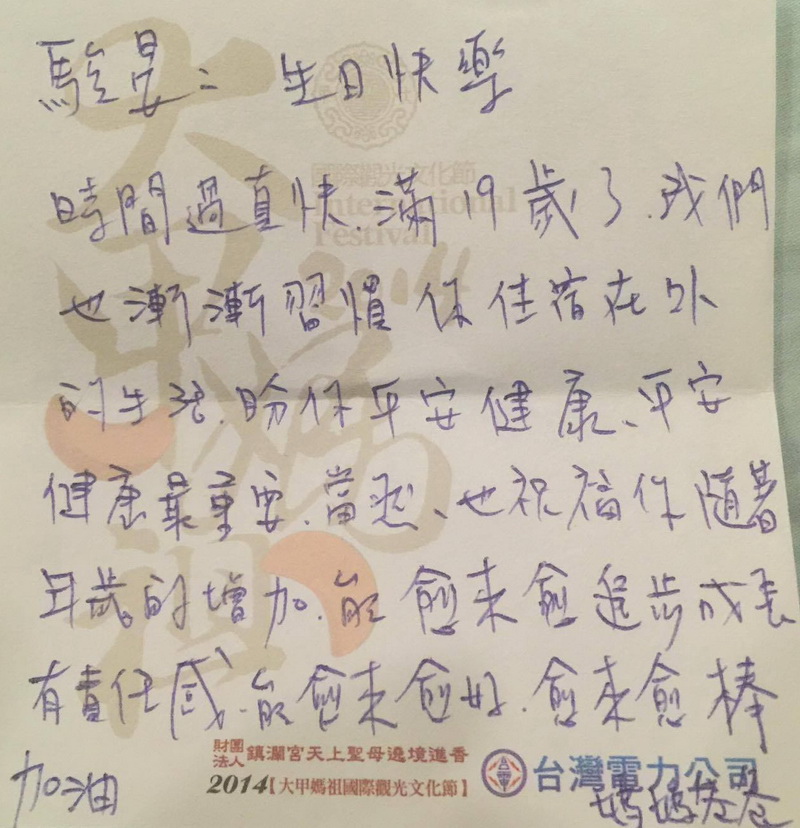 駿晏：生日快樂
時間過真快、滿19歲了、我們
也漸漸習慣你住宿在外
的生活、盼你平安健康、平安
健康最重要、當然、也祝福你隨著
年歲的增加、能愈來愈進步成長
有責任感、能愈來愈好、愈來愈棒
加油
媽媽
大甲媽祖
國際觀光文化節
International
Festival
2014
財團法人鎮瀾宮天上聖母遶境進香
2014【大甲媽祖國際觀光文化節】
台灣電力公司